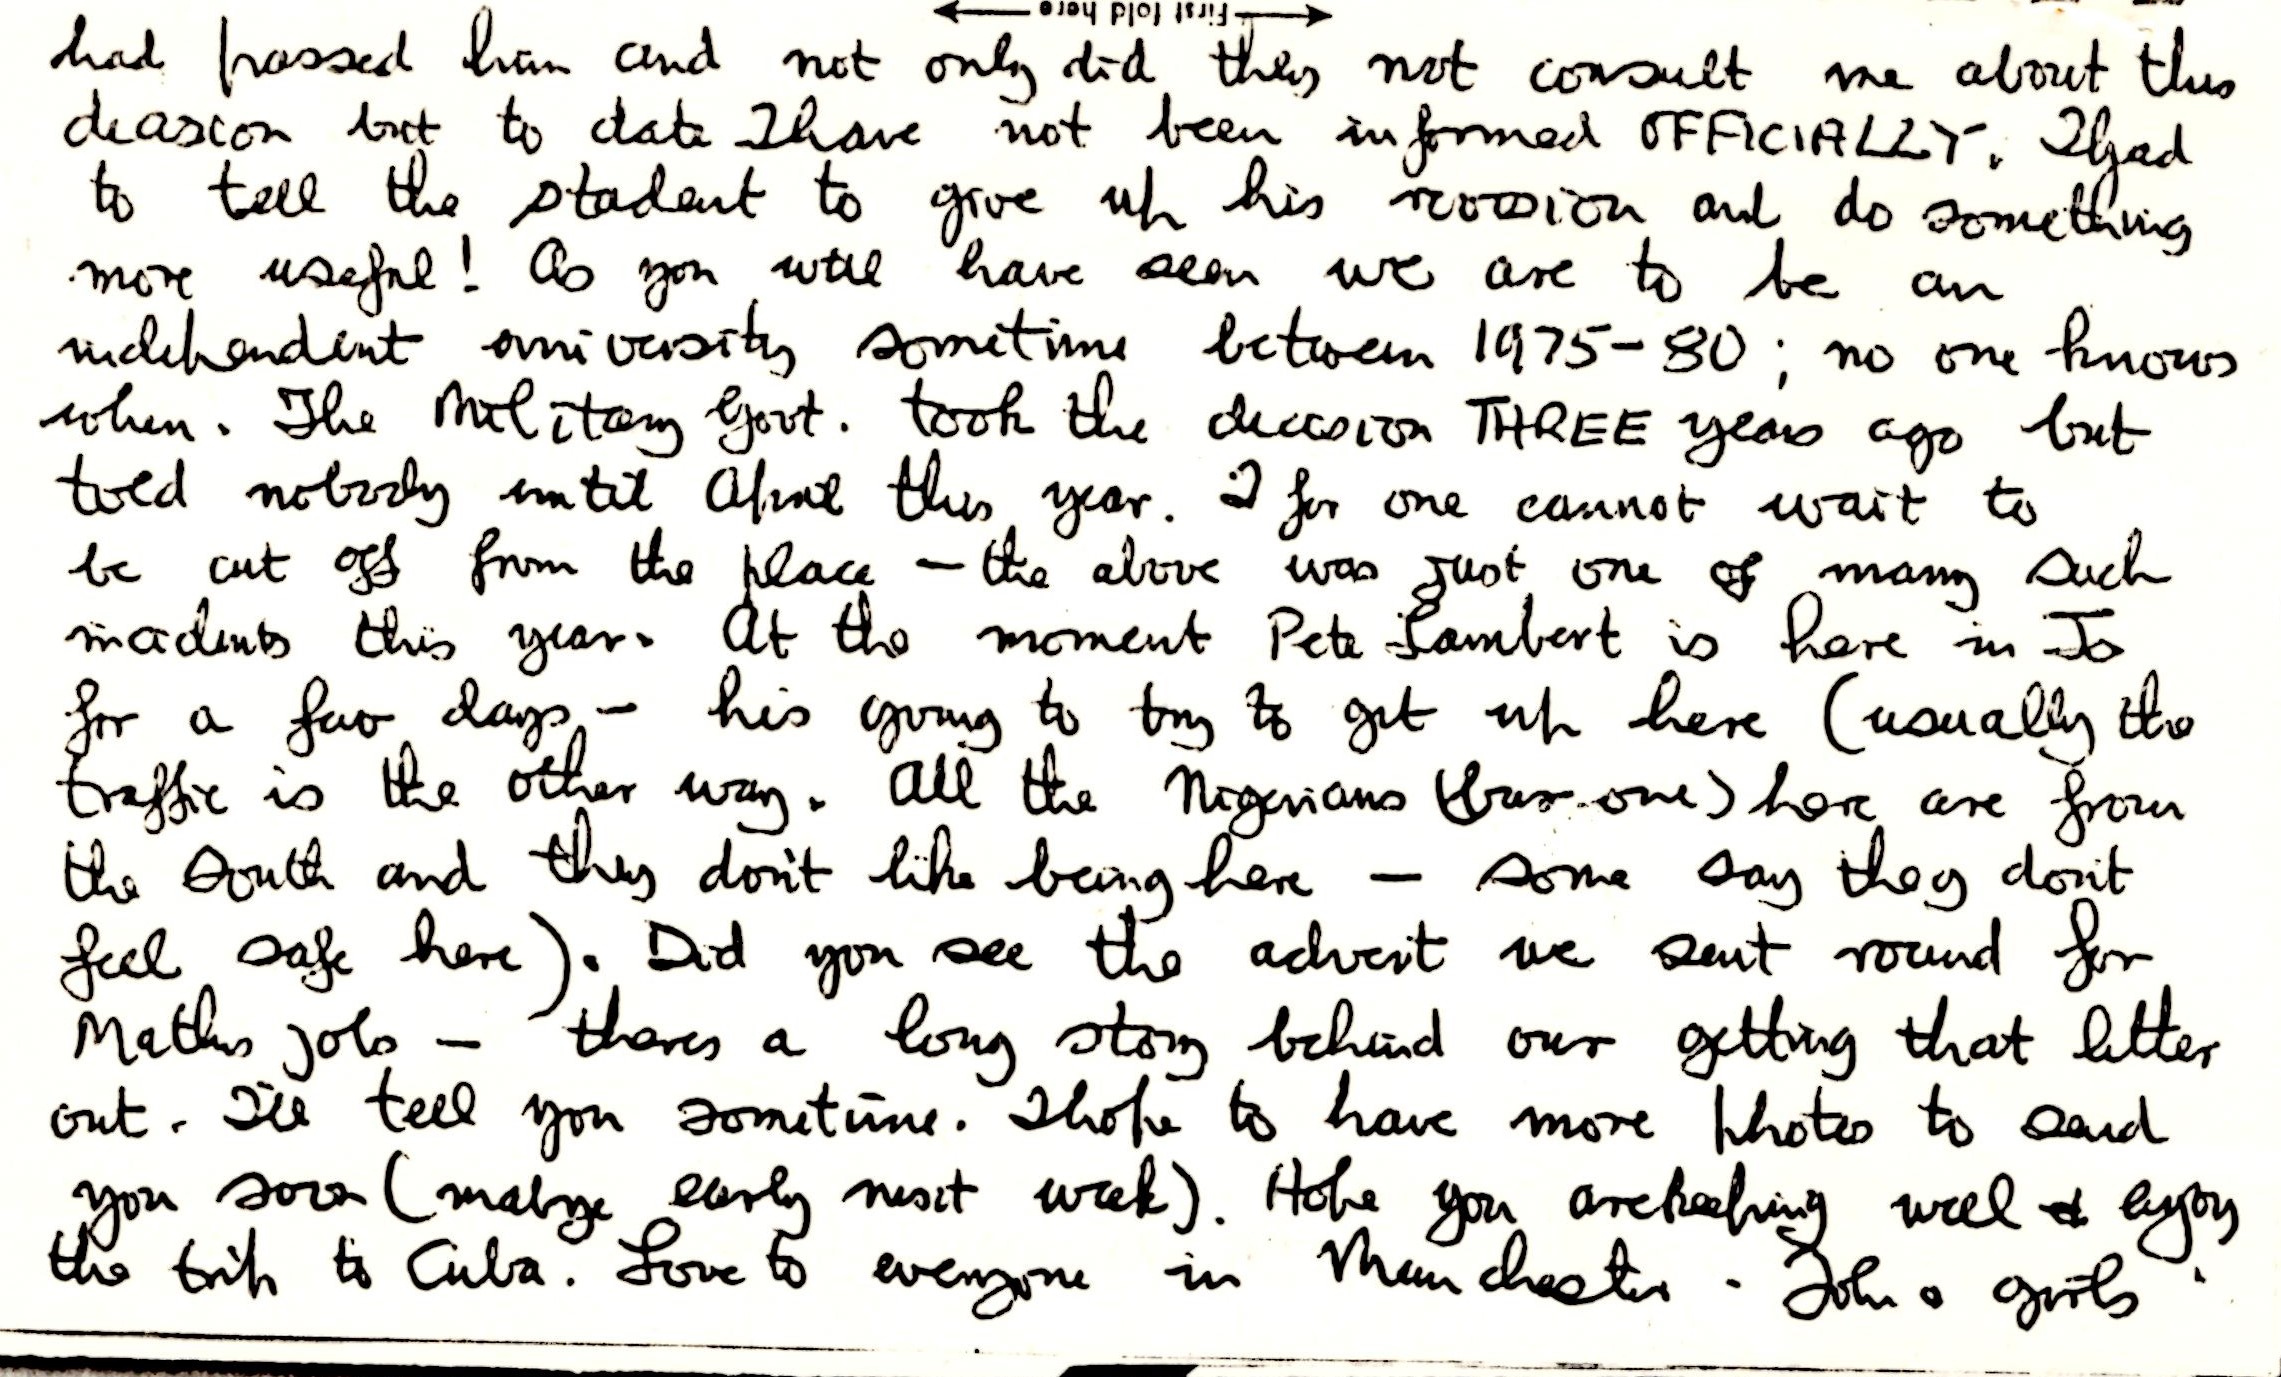 First fold here
had passed him and not only did they not consult me about this
decision but to date I have not been informed OFFICIALLY. I had
to tell the student to give up his revision and do something
more useful! As you will have seen we are to be an
independent university sometime between 1975-80; no one knows
when. The Military Govt. took the decision THREE years ago but
told nobody until April this year. I for one cannot wait to
be cut off from the place - the above was just one of many such
incidents this year. At the moment Pete Lambert is here in Jo
for a few days - his going to try to get up here (usually the
traffic is the other way. All the Nigerians (bar one) here are from
the South and they don't like being here - some say they don't
feel safe here). Did you see the advert we sent round for
Maths jobs - theres a long story behind our getting that letter
out. I'll tell you sometime. I hope to have more photos to send
you soon (maybe early next week). Hope you are keeping well & enjoy
the trip to Cuba. Love to everyone in Manchester. John & girls.